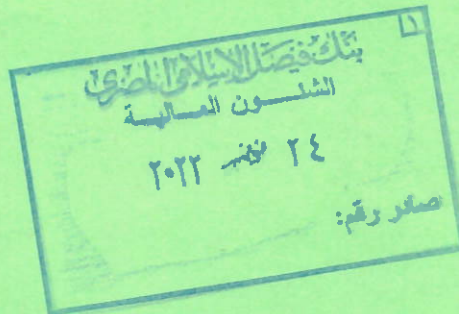 ١
بنك فيصل الإسلامى المصرى
الشئون المالية
٢٤ نوفمبر ٢٠٢٢
صادر رقم: